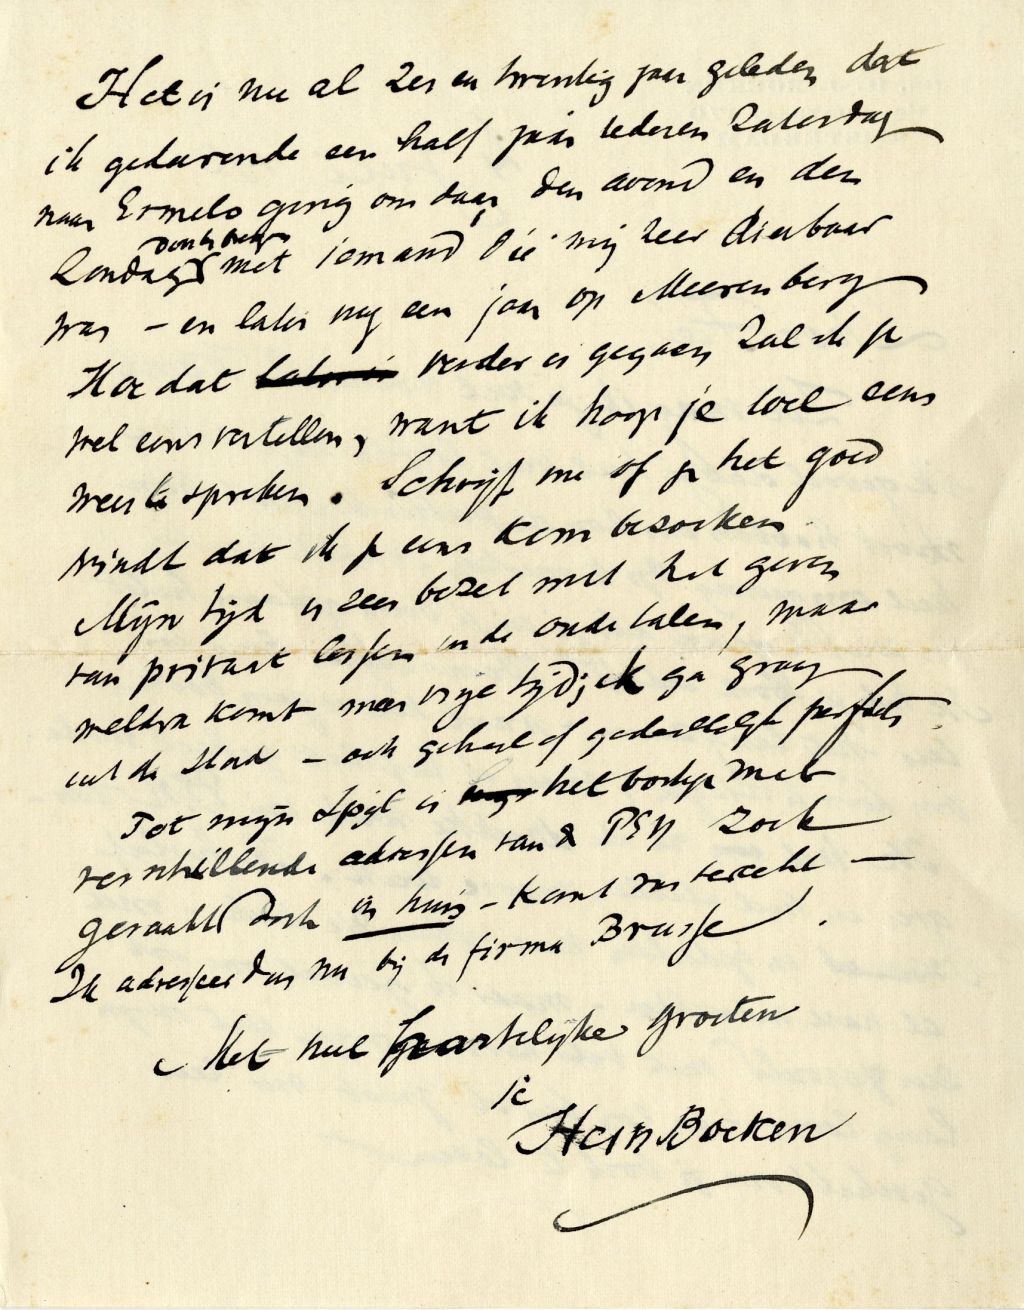 Het is nu al zes en twintig jaar geleden dat
ik gedurende een half jaar iederen Zaterdag
naar Ermelo ging om daar den avond en den
doorbreng
Zondag met iemand die mij zeer dierbaar
was – en later nog een jaar op Meerenberg
Hoe dat later is verder is gegaan zal ik je
wel eens vertellen, want ik hoop je wel eens
weer te spreken. Schrijf me of je het goed
vindt dat ik je eens kom bezoeken
Mijn tijd is zeer bezet met het geven
van privaat lessen in de oude talen, maar
weldra komt meer vrije tijd; ik ga graag
uit de stad – ook geheel of gedeeltelijk per fiets.
Tot mijn spijt is het boekje met
verschillende adressen van PSN zoek
geraakt doch in huis – komt dus terecht –
Ik adresseer dus nu bij de firma Brusse.
Met heel hartelijke groeten
je
Hein Boeken